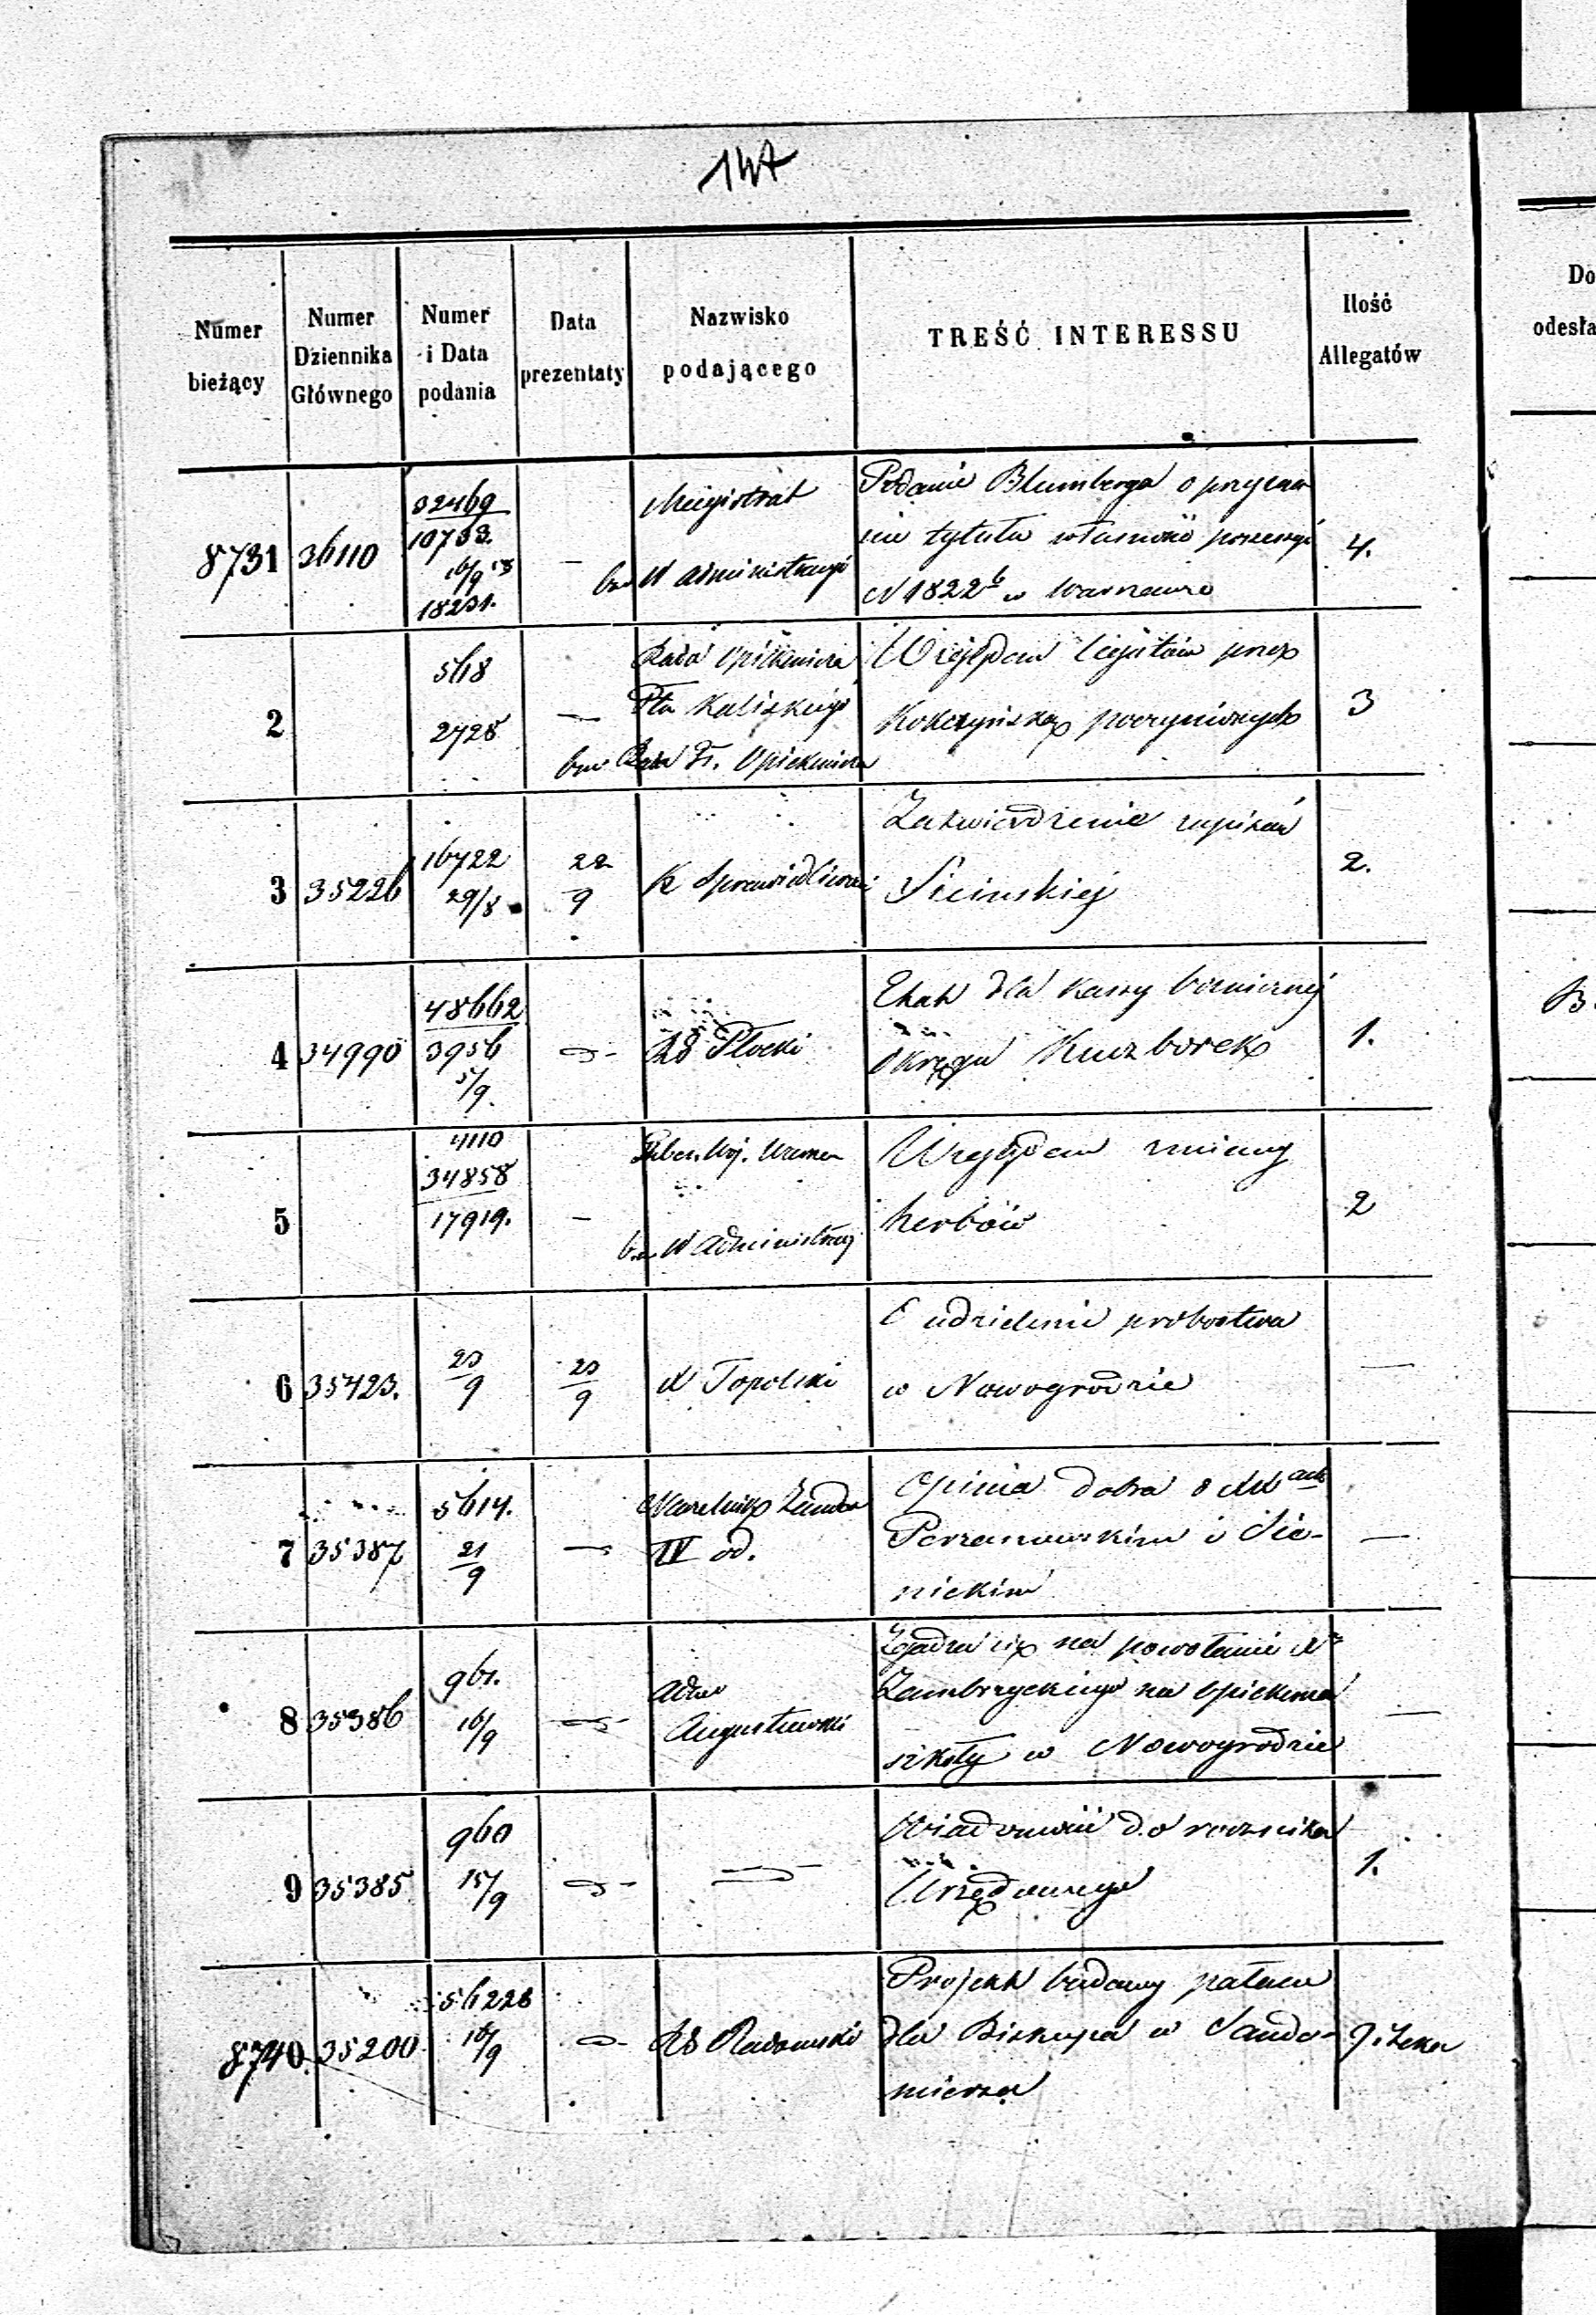 147
Numer bieżący
Numer Dziennika Głównego
Numer i Data podania
Data prezentaty
Nazwisko podającego
TREŚĆ INTERESSU
Ilość Allegatów
Do
odesła
8731 36110
32469
10733.
16/9 53
18231.
—
Magistrat
W Administracyi
Podanie Blumberga o przyzna
nie tytułu własności posessyi
N 1822 b w Warszawie
4.
2
5618
2728
—
Rada Opiekuńcza
Kaliskiego
Opiekuńcza
Względem legatów przez
poczynionych
3
3 35226
16722
29/8
22
9
K Sprawiedliwości
Zatwierdzenie zapisów
Sicinskiej
2.
4 34990
48662
3956
5/9.
RG Płocki
Etat dla Kassy bóżniczej
Okręgu Kuczborek
1.
5
4110
34858
17919.
—
W Administracyi
Względem zmiany
herbów
2
6 35423.
23
9
23
9
X Topolski
O udzielenie probostwa
w Nowogrodzie
—
7 35387
5614.
21
9
—
Naczelnik
IV od.
Opinia dobra o
i Sie-
nickim
—
8 35386
961.
16/9
Adm
Augustowski
Zgadza się na powołanie X
Zambrzyckiego na Opiekuna
szkoły w Nowogrodzie
—
9 35385
960
15/9
Wiadomość do rocznika
Urzędowego
1.
8740 35200
56228
16/9
RG Radomski
Projekt budowy pałacu
dla Biskupa w Sando-
mierzu
B